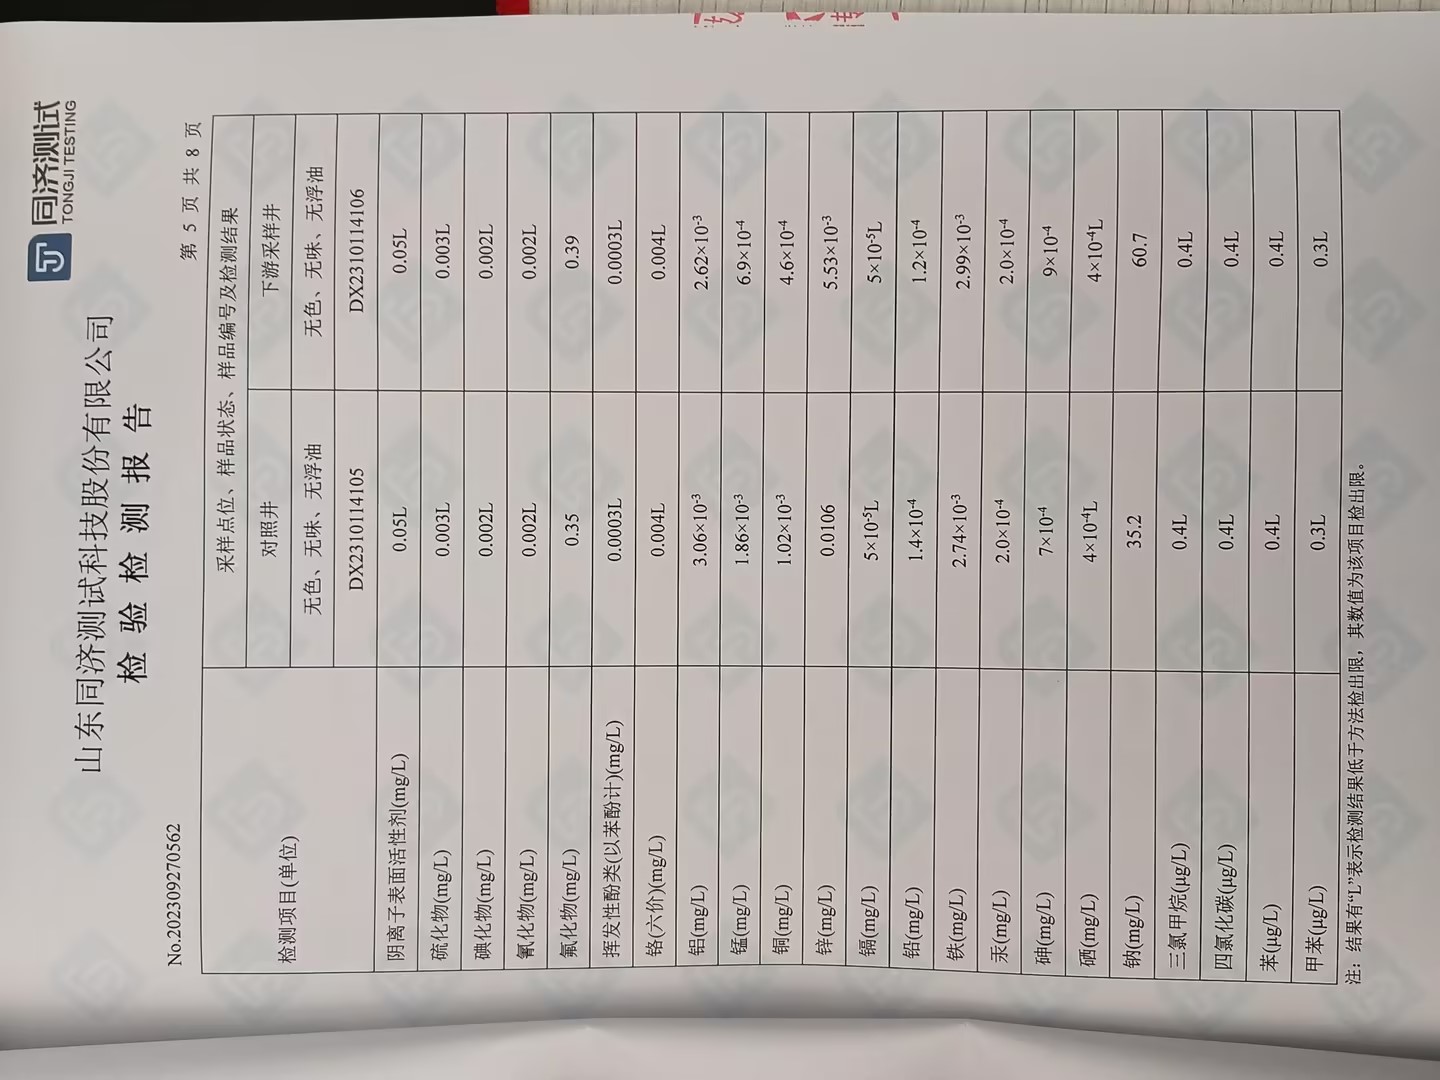 同济测试
TONGJI TESTING
山东同济测试科技股份有限公司
检验检测报告
No.202309270562
第 5 页 共 8 页
检测项目(单位) 采样点位、样品状态、样品编号及检测结果
对照井 下游采样井
无色、无味、无浮油 无色、无味、无浮油
DX2310114105 DX2310114106
阴离子表面活性剂(mg/L) 0.05L 0.05L
硫化物(mg/L) 0.003L 0.003L
碘化物(mg/L) 0.002L 0.002L
氰化物(mg/L) 0.002L 0.002L
氟化物(mg/L) 0.35 0.39
挥发性酚类(以苯酚计)(mg/L) 0.0003L 0.0003L
铬(六价)(mg/L) 0.004L 0.004L
铝(mg/L) 3.06×10⁻³ 2.62×10⁻³
锰(mg/L) 1.86×10⁻³ 6.9×10⁻⁴
铜(mg/L) 1.02×10⁻³ 4.6×10⁻⁴
锌(mg/L) 0.0106 5.53×10⁻³
镉(mg/L) 5×10⁻⁵L 5×10⁻⁵L
铅(mg/L) 1.4×10⁻⁴ 1.2×10⁻⁴
铁(mg/L) 2.74×10⁻³ 2.99×10⁻³
汞(mg/L) 2.0×10⁻⁴ 2.0×10⁻⁴
砷(mg/L) 7×10⁻⁴ 9×10⁻⁴
硒(mg/L) 4×10⁻⁴L 4×10⁻⁴L
钠(mg/L) 35.2 60.7
三氯甲烷(μg/L) 0.4L 0.4L
四氯化碳(μg/L) 0.4L 0.4L
苯(μg/L) 0.4L 0.4L
甲苯(μg/L) 0.3L 0.3L
注：结果有“L”表示检测结果低于方法检出限，其数值为该项目检出限。